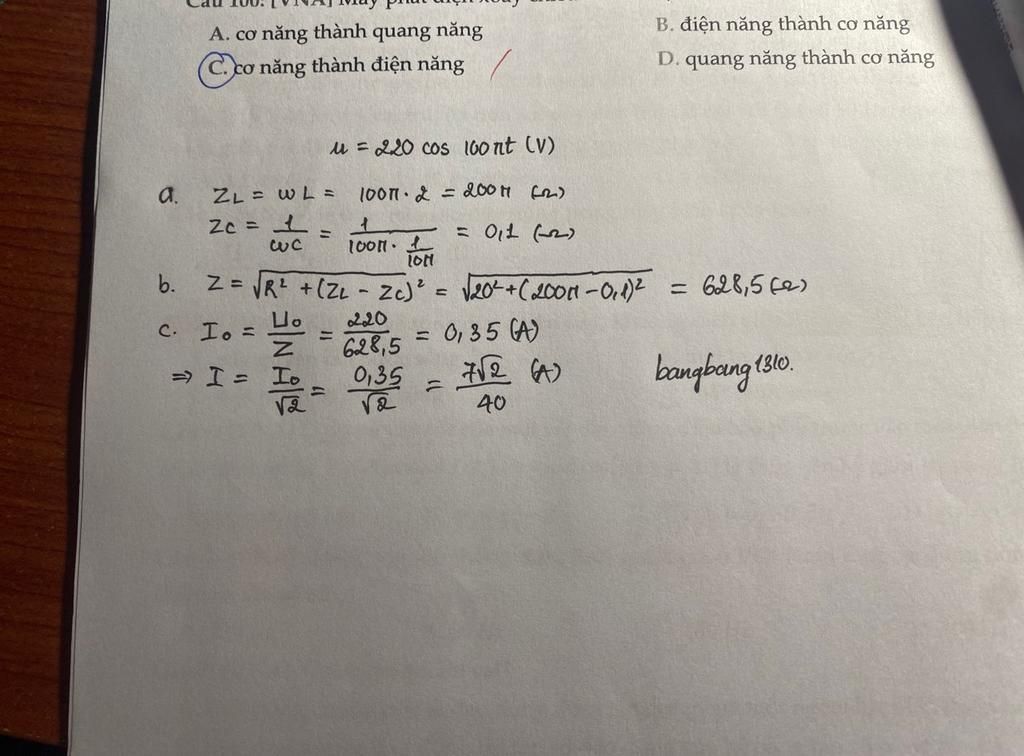 Câu 100: [VNA] Máy phát điện xoay
A. cơ năng thành quang năng
B. điện năng thành cơ năng
C. cơ năng thành điện năng
D. quang năng thành cơ năng
u = 220 cos 100πt (V)
a. ZL = ωL = 100π · 2 = 200π (Ω)
ZC = 1/ωC = 1/(100π · 1/10π) = 0,1 (Ω)
b. Z = √(R² + (ZL - ZC)²) = √(20² + (200π - 0,1)²) = 628,5 (Ω)
c. I₀ = U₀/Z = 220/628,5 = 0,35 (A)
⇒ I = I₀/√2 = 0,35/√2 = 7√2/40 (A)
bangbang1310.